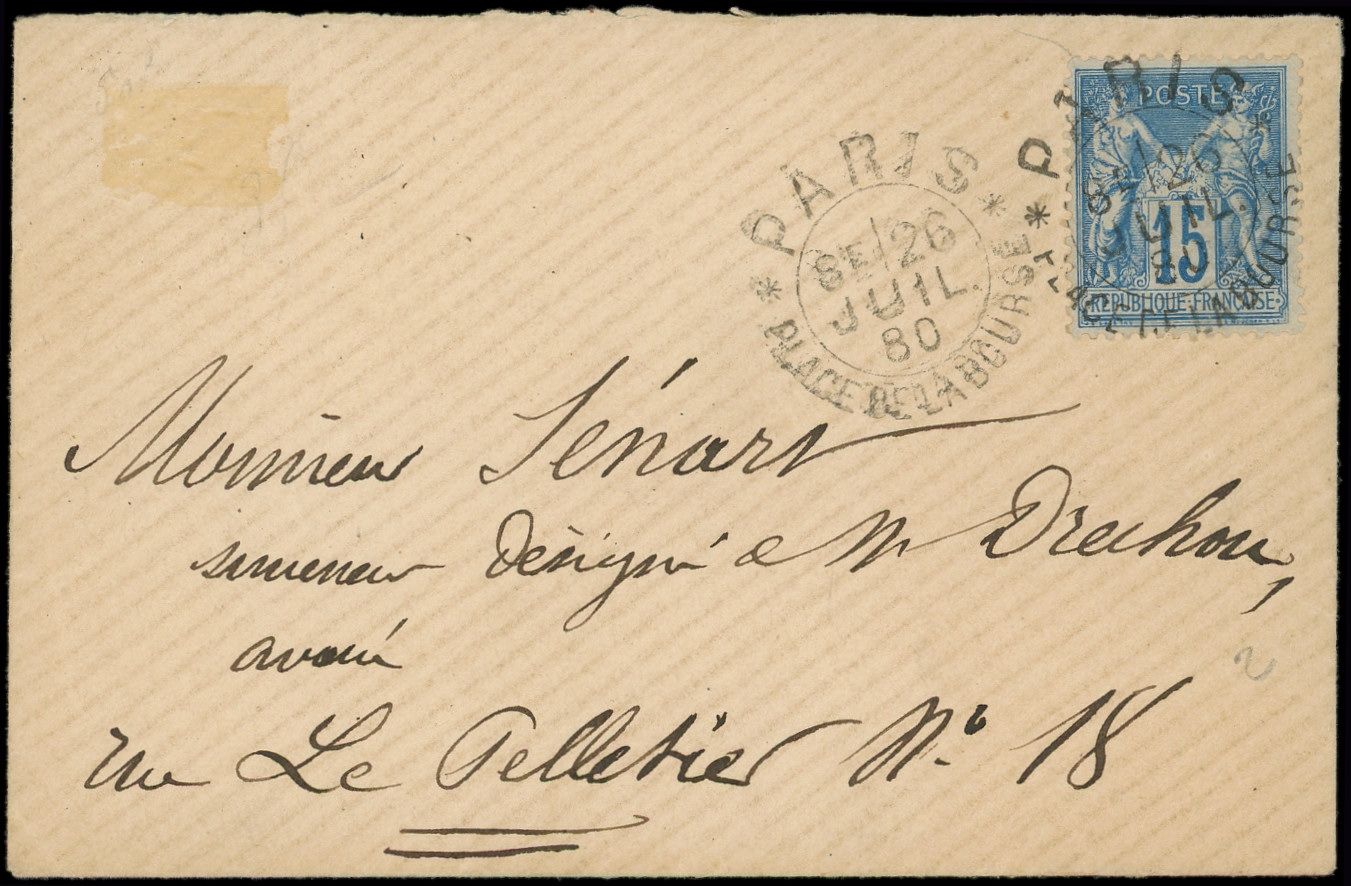 POSTE
15
REPUBLIQUE FRANÇAISE
PARIS
8E/26
JUIL.
80
PLACE DE LA BOURSE
PARIS
8E/26
JUIL.
80
PLACE DE LA BOURSE
Monsieur Sénart
successeur désigné de Mr
avoué
rue Le Pelletier No. 18
2